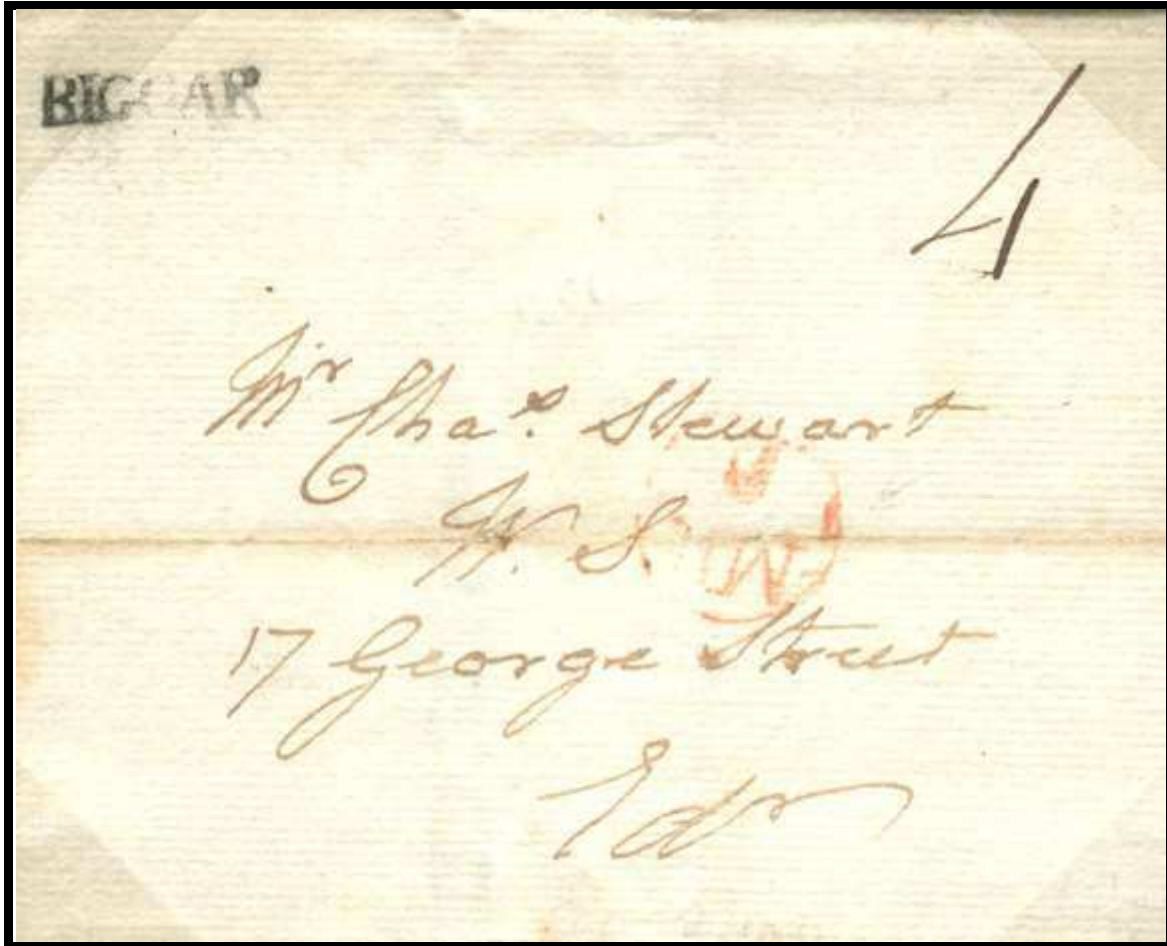 BIGGAR
4
Mr Chas. Stewart
W. S.
17 George Street
Edr